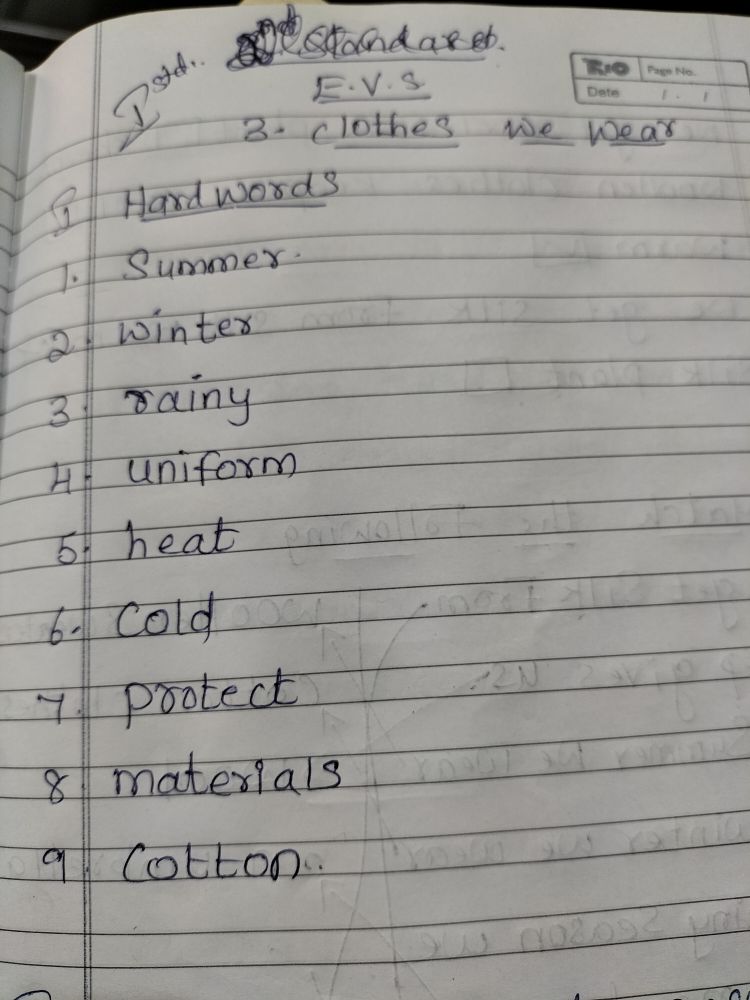 I std..
Standard.
E.V.S
RIO Page No.
Date / . /
3. clothes we wear
I Hard words
1. Summer.
2. winter
3. rainy
4. uniform
5. heat
6. Cold
7. protect
8 materials
9. Cotton.